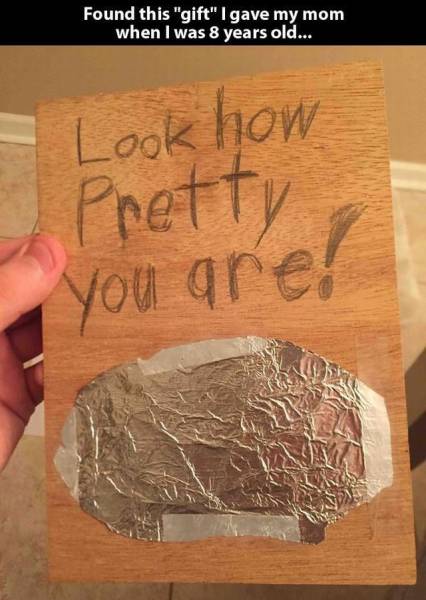 Found this "gift" I gave my mom
when I was 8 years old...
Look how
Pretty
you are!